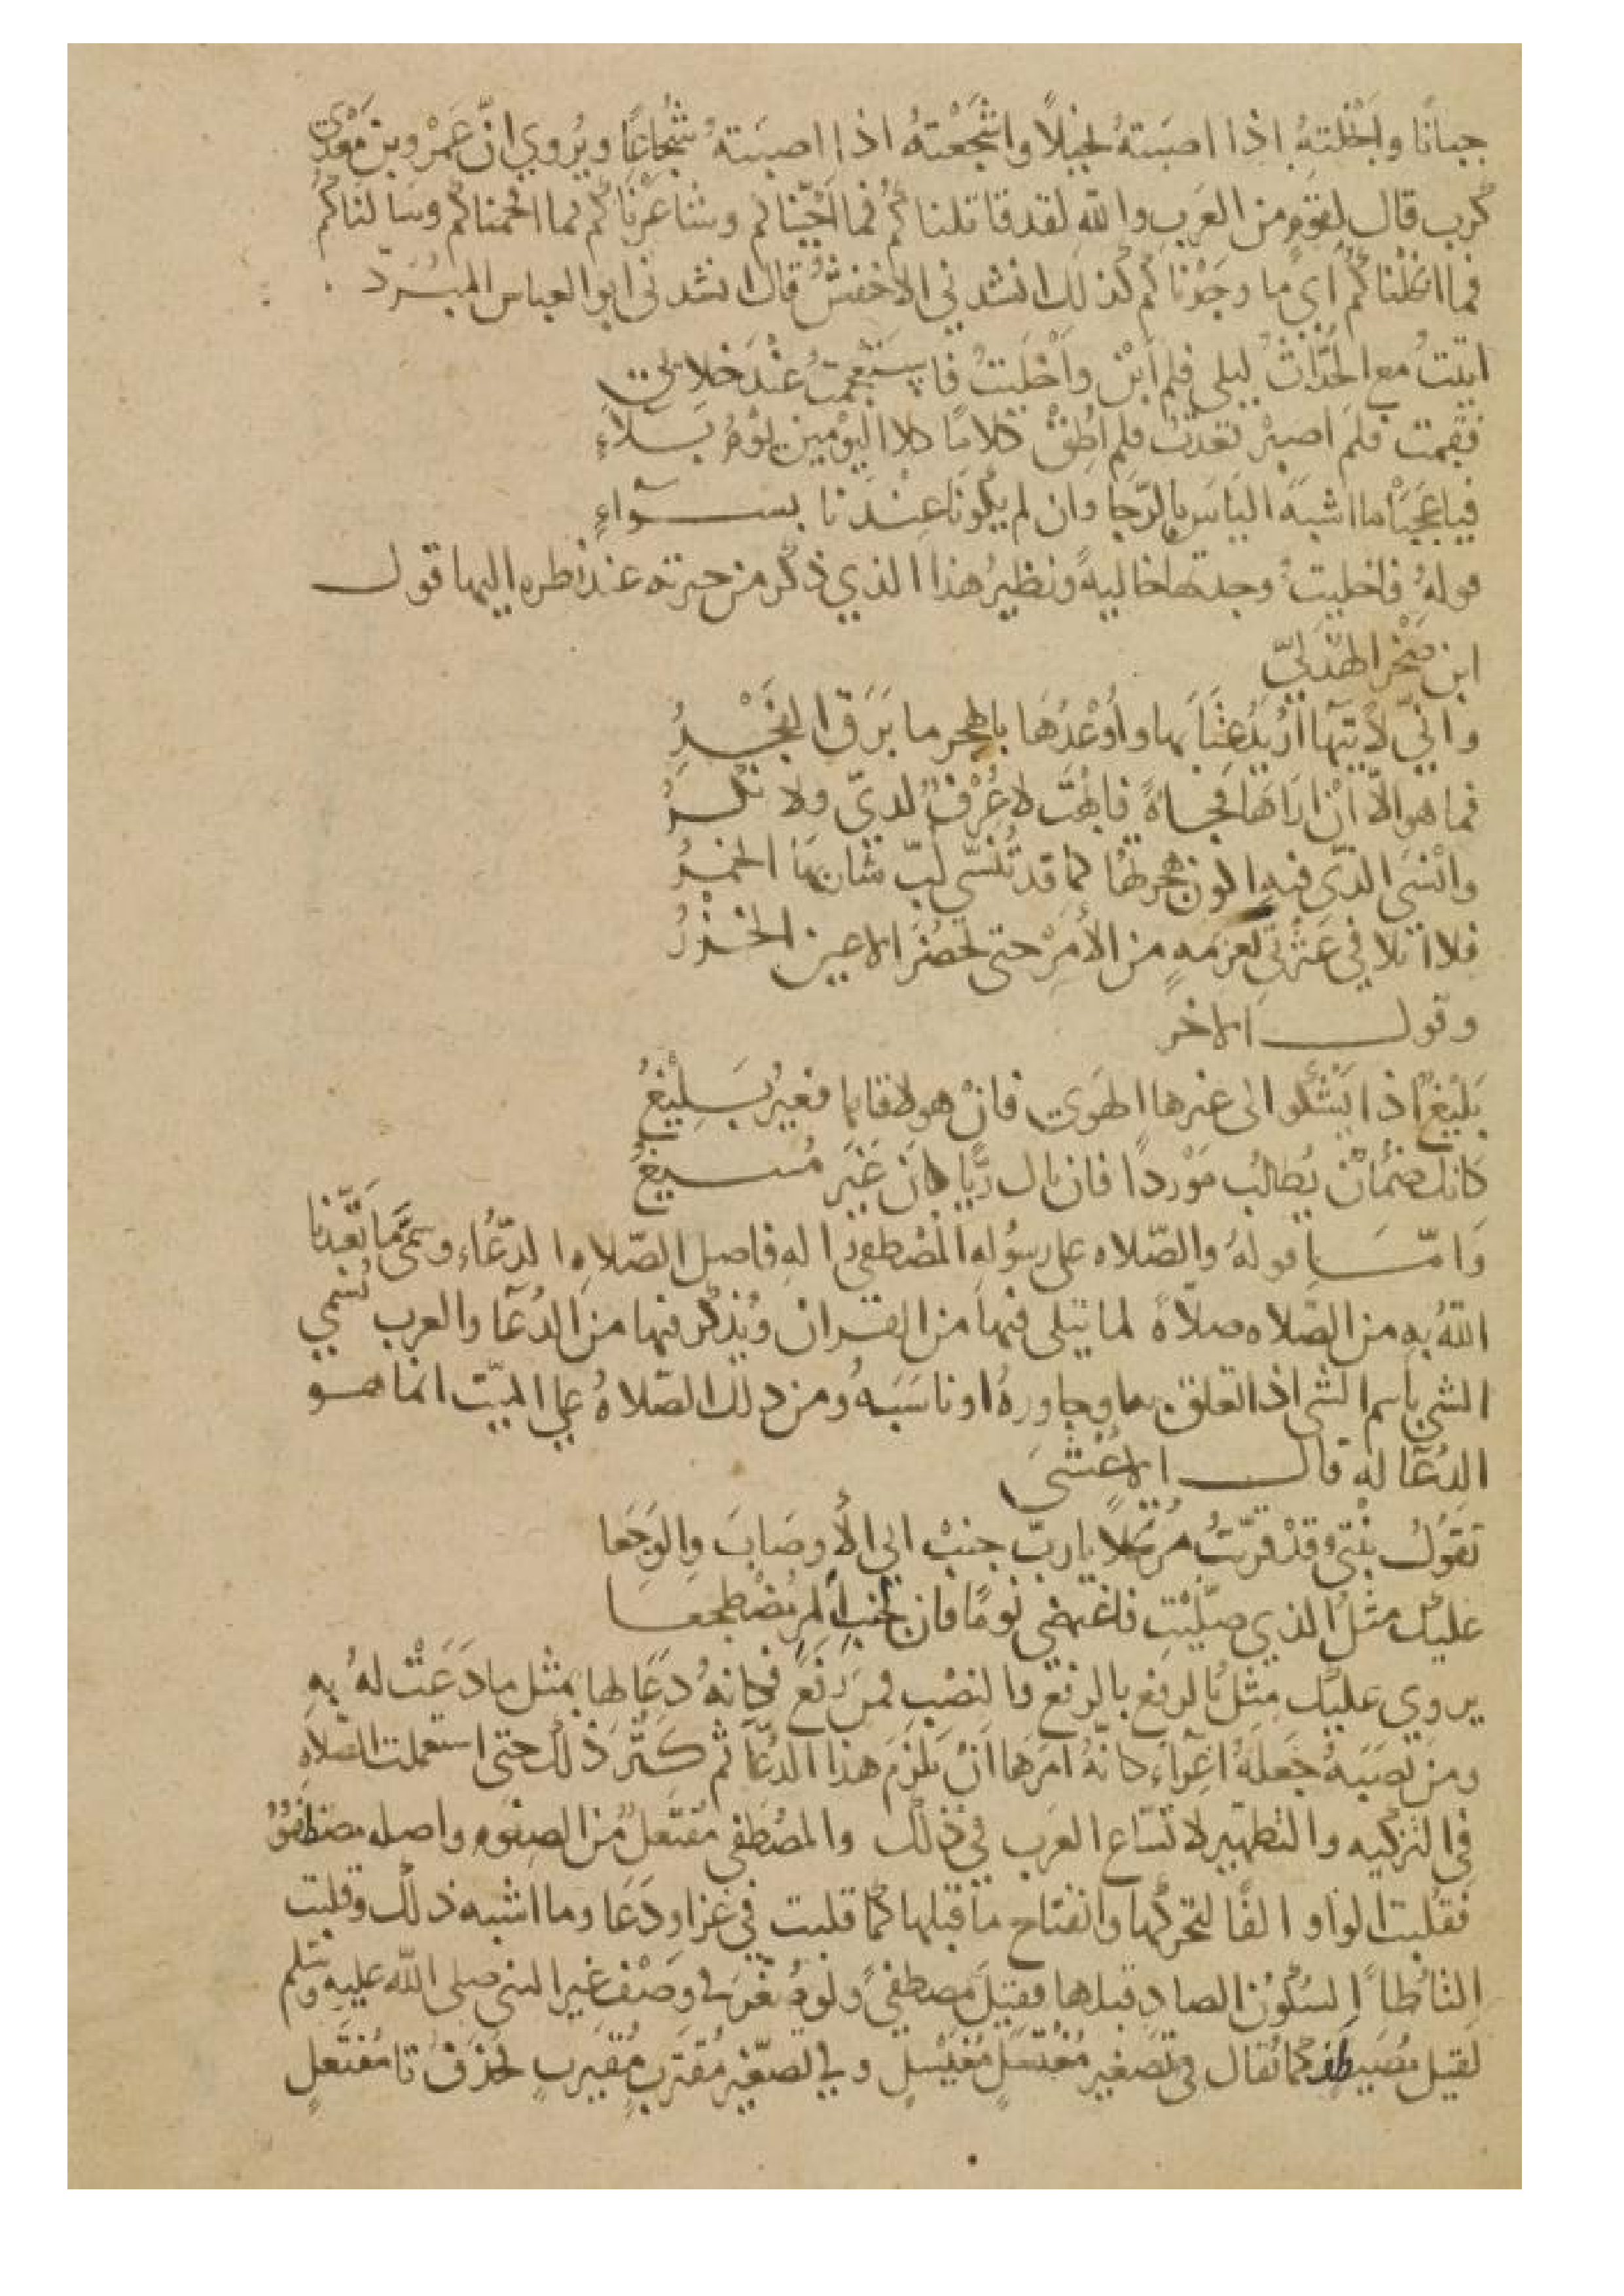 جبانًا وابخلته اذا اصبته بخيلاً واشجعته اذا اصبته شجاعًا ويروي انّ عمرو بن معدي
كرب قال لقوم من العرب والله لقد قاتلناكم فما اجبنّاكم وشاعرناكم فما افحمناكم وسالناكم
فما ابخلناكم اي ما وجدناكم كذلك انشدني الاخفش قال انشدني ابو العباس المبرّد
اتيت مع الحدّاث ليلى فلم ابن واخليت فاستعجمت عند خلائي
فقمت فلم اصبر فعدت فلم اطق كلامًا كلا اليومين يوم بلاء
فيا عجبًا ما اشبه الياس بالرجا وان لم يكونا عندنا بسواء
قوله فاخليت وجدتها خالية ونظير هذا الذي ذكر من حيرته عند نظره اليها قول
ابن صخر الهذليّ
وانّي لآتيها اريد عتابها واوعدها بالهجر ما برق الفجر
فما هو الّا ان اراها فجاة فابهت لا عرف لديّ ولا نكر
وانسى الذي فيه اكون هجرتها كما قد تنسّي لبّ شاربها الخمر
فلا اتلافى عثرتي بعزمه من الأمر حتى تحضر الاعين الخزر
وقول الاخر
بليغ اذا يشكو الى غيرها الهوى فان هو لاقاها فغير بليغ
كانك ضمان يطالب موردًا فان نال ريًّا كان غير مسيغ
وامّا قوله والصّلاه على رسوله المصطفى واله فاصل الصّلاه الدّعاء وسمّى ما تعبّدنا
الله به من الصّلاه صلاة لما يتلى فيها من القران ويذكر فيها من الدعا والعرب تسمي
الشي باسم الشي اذا تعلق به او جاوره او ناسبه ومن ذلك الصّلاة على الميّت انما هو
الدعا له قال الاعشى
تقول بنتي وقد قرّبت مرتحلاً يا ربّ جنب ابي الأوصاب والوجعا
عليك مثل الذي صلّيت فاغتمضي نومًا فان لجنب المر مضطجعا
يروي عليك مثل بالرفع والنصب فمن رفع فكانه دعا لها بمثل ما دعت له به
ومن نصبه جعله اغراء كانّه امرها ان تلزم هذا الدعا ثم كثّر ذلك حتى استعملت الصّلاه
في التزكيه والتطهير لاتساع العرب في ذلك والمصطفى مفتعل من الصفوه واصله مصتفو
فقلبت الواو الفًا لتحركها وانفتاح ما قبلها كما قلبت في غزا ودعا وما اشبه ذلك وقلبت
التا طا لسكون الصاد قبلها فقيل مصطفى ولو صغّر في وصف غير النبي صلى الله عليه وسلم
لقيل مصيطف كما يقال في تصغير مغتسل مغيسل وفي تصغير مقترب مقيرب لحذف تا مفتعل